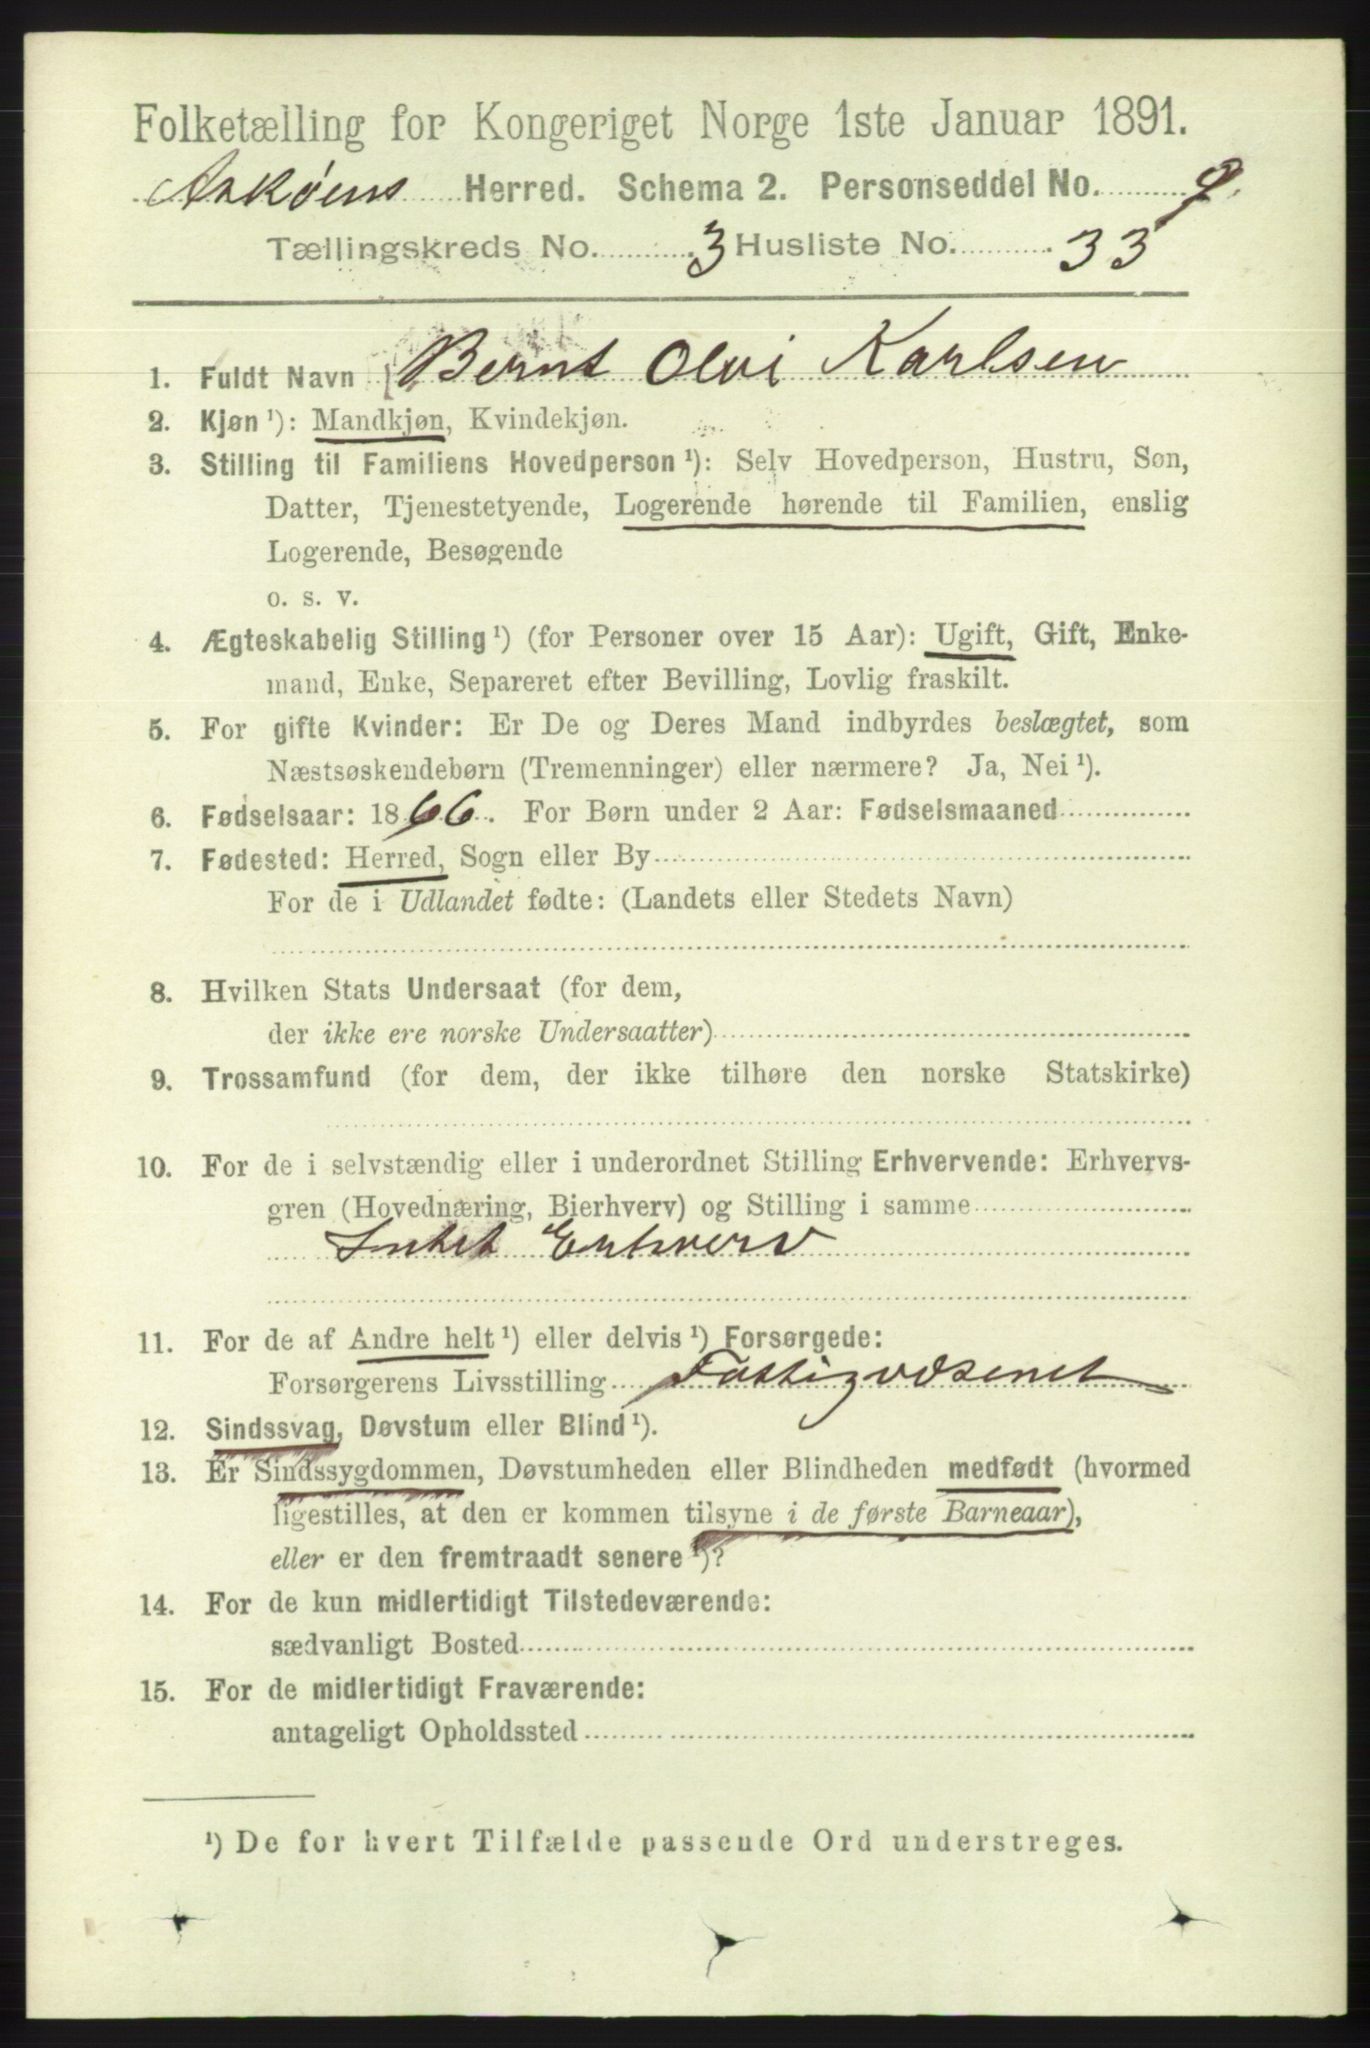 Folketælling for Kongeriget Norge 1ste Januar 1891.
Askøens Herred. Schema 2. Personseddel No. 9.
Tællingskreds No. 3 Husliste No. 33
1. Fuldt Navn Bernt Olai Karlsen
2. Kjøn ¹): Mandkjøn, Kvindekjøn.
3. Stilling til Familiens Hovedperson ¹): Selv Hovedperson, Hustru, Søn,
Datter, Tjenestetyende, Logerende hørende til Familien, enslig
Logerende, Besøgende
o. s. v.
4. Ægteskabelig Stilling ¹) (for Personer over 15 Aar): Ugift, Gift, Enke-
mand, Enke, Separeret efter Bevilling, Lovlig fraskilt.
5. For gifte Kvinder: Er De og Deres Mand indbyrdes beslægtet, som
Næstsøskendebørn (Tremenninger) eller nærmere? Ja, Nei ¹).
6. Fødselsaar: 1866. For Børn under 2 Aar: Fødselsmaaned
7. Fødested: Herred, Sogn eller By
For de i Udlandet fødte: (Landets eller Stedets Navn)
8. Hvilken Stats Undersaat (for dem,
der ikke ere norske Undersaatter)
9. Trossamfund (for dem, der ikke tilhøre den norske Statskirke)
10. For de i selvstændig eller i underordnet Stilling Erhvervende: Erhvervs-
gren (Hovednæring, Bierhverv) og Stilling i samme
Intet Erhverv
11. For de af Andre helt ¹) eller delvis ¹) Forsørgede:
Forsørgerens Livsstilling Fattigvæsenet
12. Sindssvag, Døvstum eller Blind ¹).
13. Er Sindssygdommen, Døvstumheden eller Blindheden medfødt (hvormed
ligestilles, at den er kommen tilsyne i de første Barneaar),
eller er den fremtraadt senere ¹)?
14. For de kun midlertidigt Tilstedeværende:
sædvanligt Bosted
15. For de midlertidigt Fraværende:
antageligt Opholdssted
¹) De for hvert Tilfælde passende Ord understreges.